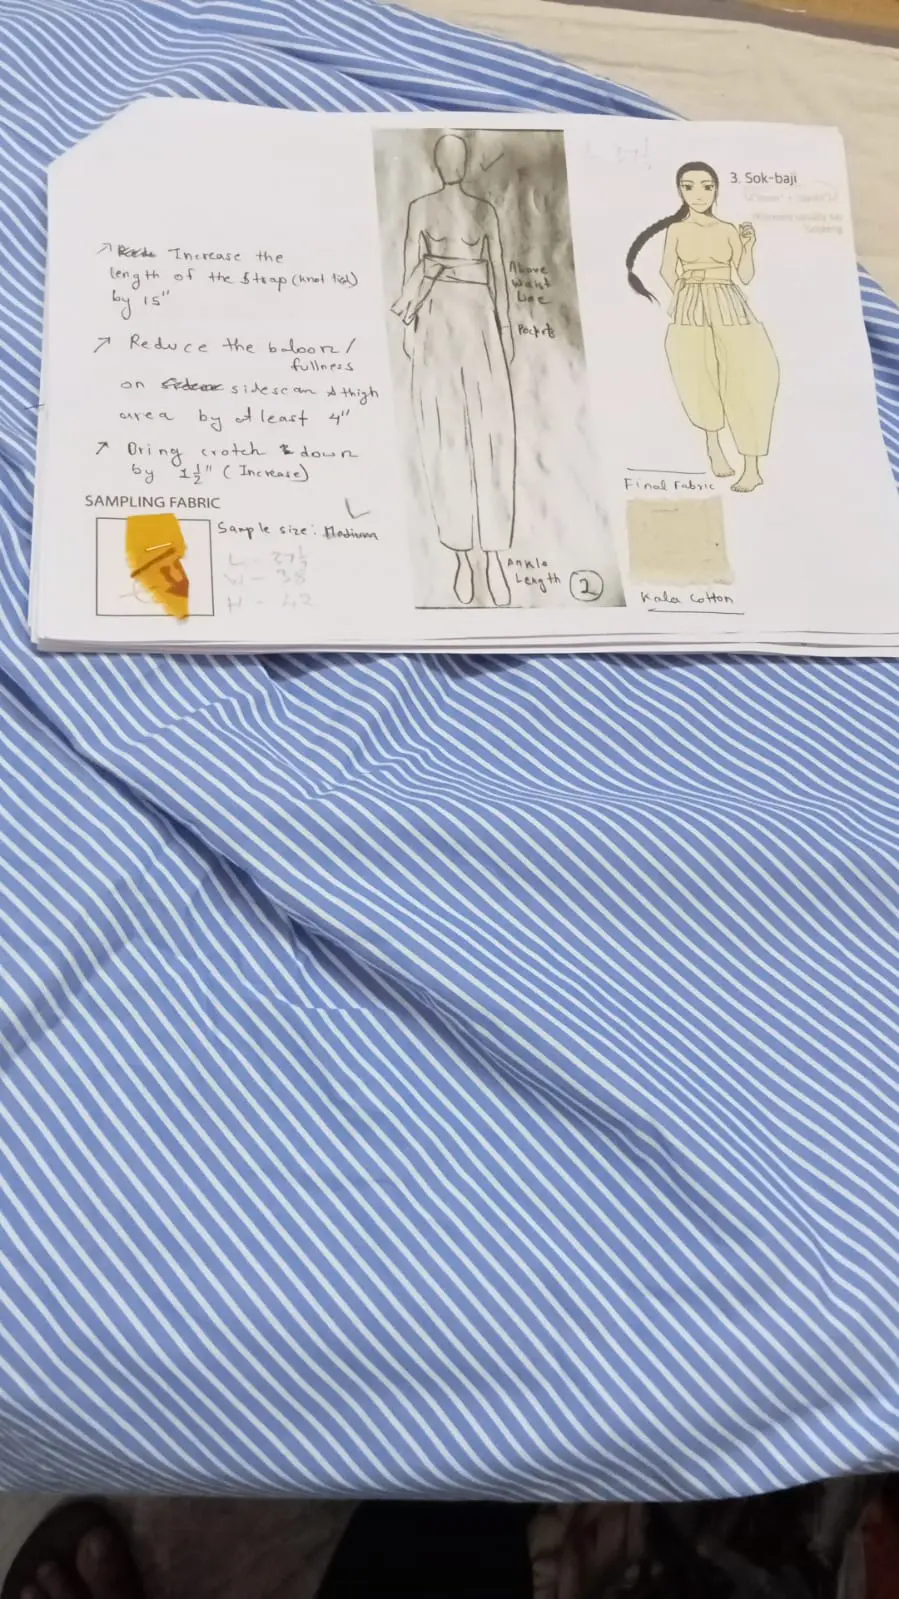 Increase the
length of the Strap (knot tied)
by 15"
Reduce the baloon/
fullness
on sideseam & thigh
area by At least 4"
Bring crotch down
by 1½" (Increase)
SAMPLING FABRIC
Sample size: Medium
W - 38
H - 42
Above
Waist
Line
Pockets
Ankle
Length
2
3. Sok-baji
Final Fabric
Kala Cotton